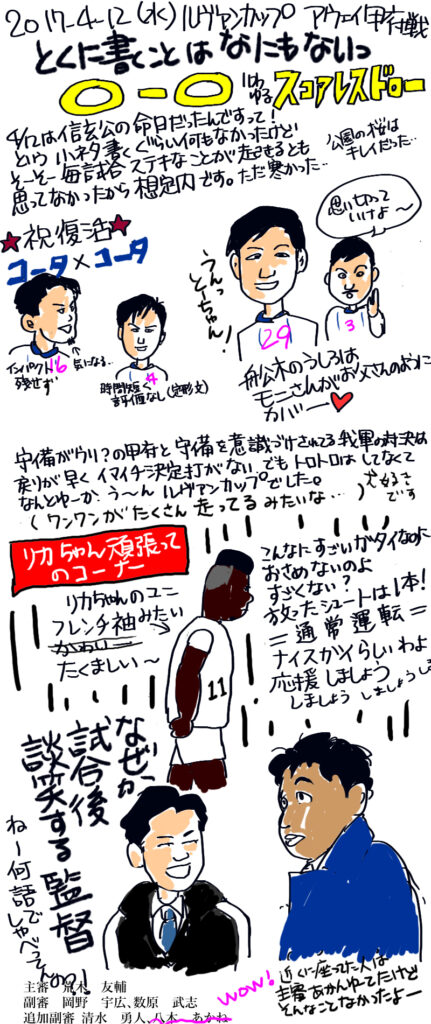 2017-4-12(水)ルヴァンカップ アウェイ甲府戦
とくに書くことはなにもないっ
0-0 いわゆる スコアレスドロー
4/12は信玄公の命日だったんですって!
という小ネタ書くぐらい何もなかったけど
そーそー毎試合ステキなことが起きるとも
思ってなかったから想定内です。ただ寒かった…
公園の桜は
キレイだった…
★祝復活★
コータ×コータ
思い切って
いけよ~
うんっ
とーちゃん!
16
4
29
3
気になる…
インパクト
残せず
時間短く
評価なし(定形文)
舩木のうしろは
モニさんがお父さんのように
カバー♥
守備がウリ?の甲府と守備を意識づけされてる我軍の対決は
戻りが早くイマイチ決定打がない、でもトロトロはしてなくて
なんとゆーか、う~んルヴァンカップでした。
(ワンワンがたくさん走ってるみたいな…)
大好き
です
リカちゃん頑張って
のコーナー
リカちゃんのユニ
フレンチ袖みたい
かわいー
たくましい~
11
こんなにすごいガタイなのに
おさめないのよ
すごくない?
放ったシュートは1本!
=通常運転=
ナイスがツくらいわよ
応援しましょう
しましょう しましょう
なぜか
試合後
談笑する監督
ねー何話して
しゃべってんのっ!
主審 荒木 友輔
副審 岡野 宇広、数原 武志
追加副審 清水 勇人、八木 あかね
wow!
近くに座ってた人は
主審あかんゆーてたけど
そんなことなかったよー